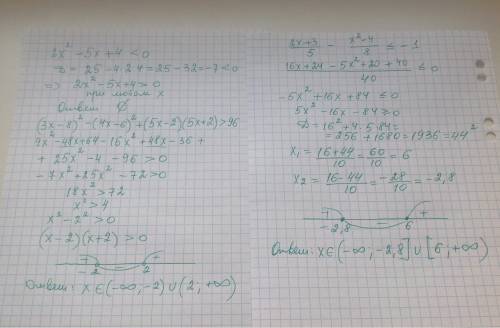 2x² - 5x + 4 < 0
D = 25 - 4·2·4 = 25 - 32 = -7 < 0
=> 2x² - 5x + 4 > 0
при любом x
Ответ ∅
(3x-8)² - (4x-6)² + (5x-2)(5x+2) > 96
9x² - 48x + 64 - 16x² + 48x - 36 +
+ 25x² - 4 - 96 > 0
-7x² + 25x² - 72 > 0
18x² > 72
x² > 4
x² - 2² > 0
(x-2)(x+2) > 0
+ - +
-2 2
Ответ: x ∈ (-∞; -2) ∪ (2; +∞)
(2x+3)/5 - (x²-4)/8 ≤ -1
(16x + 24 - 5x² + 20 + 40)/40 ≤ 0
-5x² + 16x + 84 ≤ 0
5x² - 16x - 84 ≥ 0
D = 16² + 4·5·84 =
= 256 + 1680 = 1936 = 44²
x₁ = (16+44)/10 = 60/10 = 6
x₂ = (16-44)/10 = -28/10 = -2,8
+ - +
-2,8 6
Ответ: x ∈ (-∞; -2,8] ∪ [6; +∞)